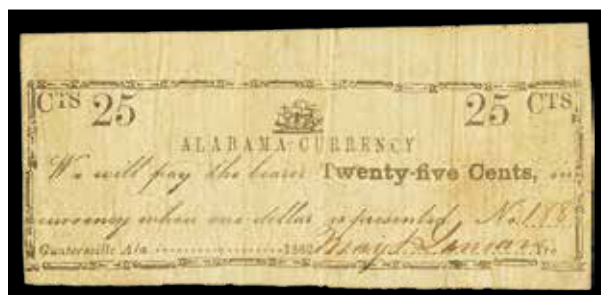 CTS 25 25 CTS.
ALABAMA CURRENCY
We will pay the bearer Twenty-five Cents, in
currency when one dollar is presented, No. 188
Guntersville Ala 186